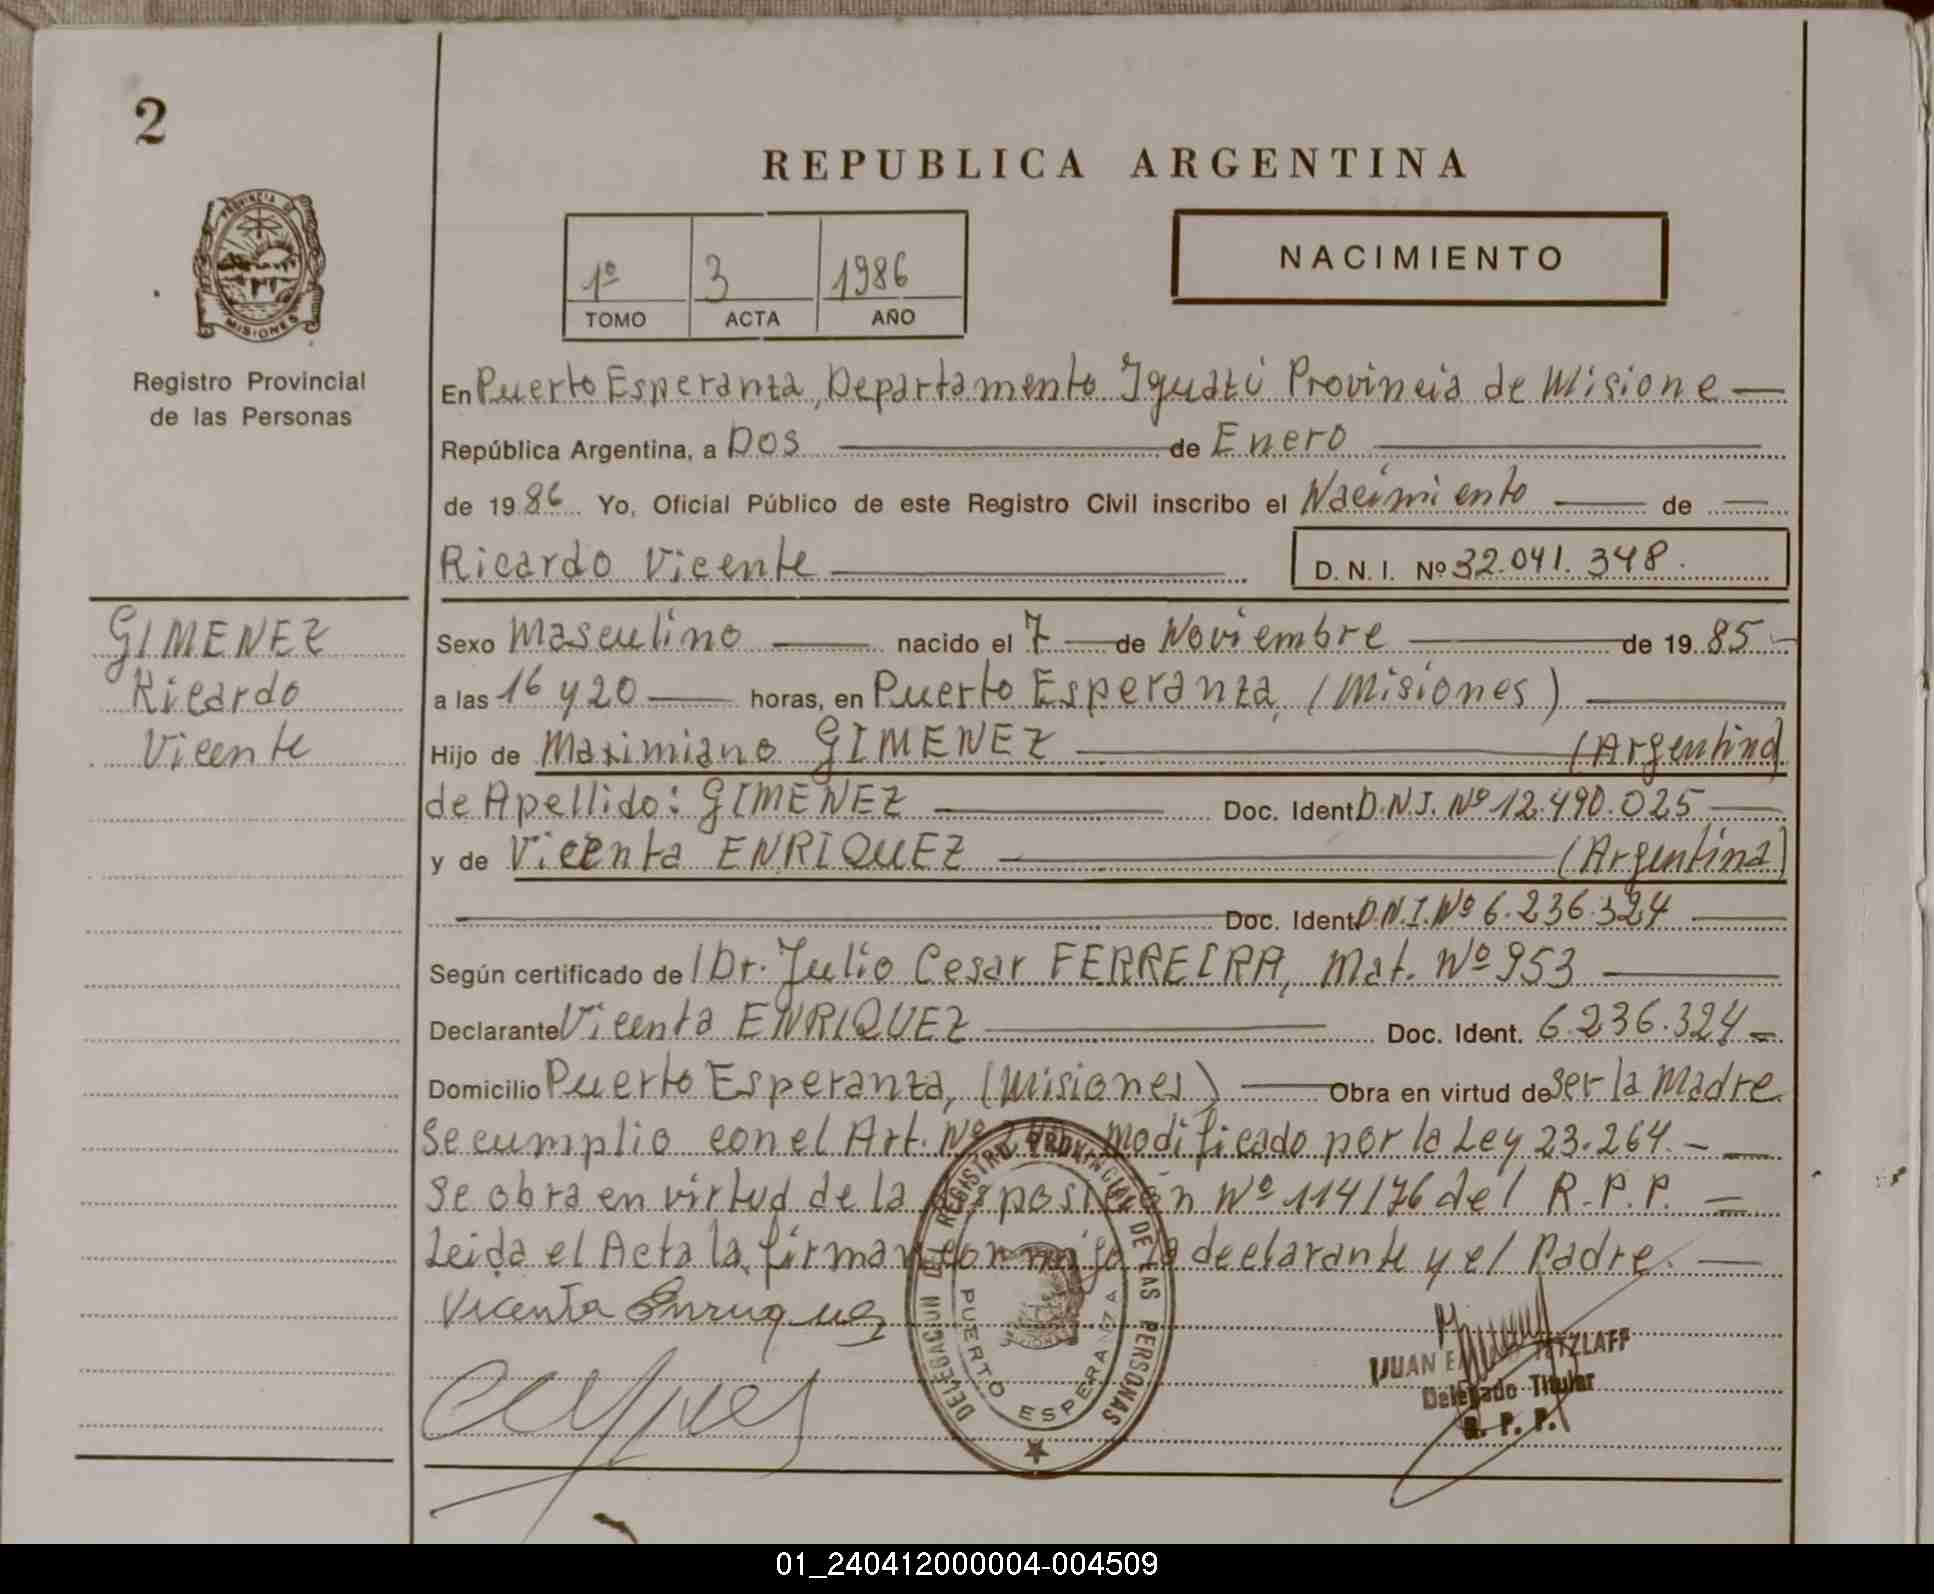 2
REPUBLICA ARGENTINA
PROVINCIA DE
MISIONES
1º 3 1986
TOMO ACTA AÑO
NACIMIENTO
Registro Provincial
de las Personas
En Puerto Esperanza, Departamento Iguazú Provincia de Misione
República Argentina, a Dos de Enero
de 1986 Yo, Oficial Público de este Registro Civil inscribo el Nacimiento de
Ricardo Vicente D. N. I. Nº 32.041.348.
GIMENEZ
Ricardo
Vicente
Sexo Masculino nacido el 7 de Noviembre de 1985.-
a las 16 y 20 horas, en Puerto Esperanza, (Misiones)
Hijo de Maximiano GIMENEZ (Argentino)
de Apellido: GIMENEZ Doc. Ident. D.N.I. Nº 12.490.025
y de Vicenta ENRIQUEZ (Argentina)
Doc. Ident. D.N.I. Nº 6.236.324
Según certificado de Dr. Julio Cesar FERREIRA, Mat. Nº 953
Declarante Vicenta ENRIQUEZ Doc. Ident. 6.236.324
Domicilio Puerto Esperanza, (Misiones) Obra en virtud de ser la Madre
Se cumplio con el Art. Nº modificado por la Ley 23.264.-
Se obra en virtud de la Disposición Nº 114/76 del R.P.P.
Leida el Acta la firman conmigo la declarante y el Padre.
Vicenta Enriquez
DELEGACION DEL REGISTRO PROVINCIAL DE LAS PERSONAS
PUERTO ESPERANZA
JUAN TETZLAFF
Delegado Titular
R. P. P.
01_240412000004-004509